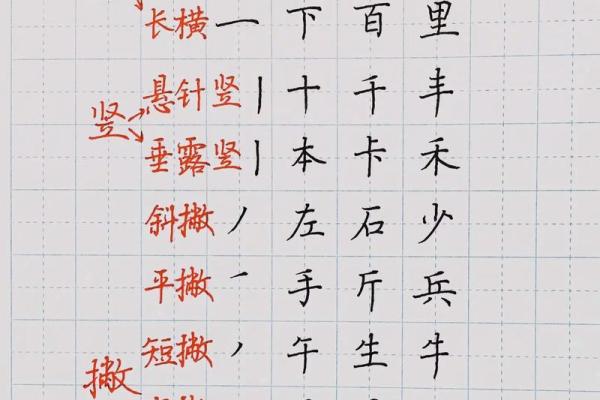 长横 一 下 百 里
竖
悬针竖 丨 十 千 丰
垂露竖 丨 本 卡 禾
斜撇 丿 左 石 少
平撇 ㇒ 手 斤 兵
短撇 ㇒ 午 生 牛
撇